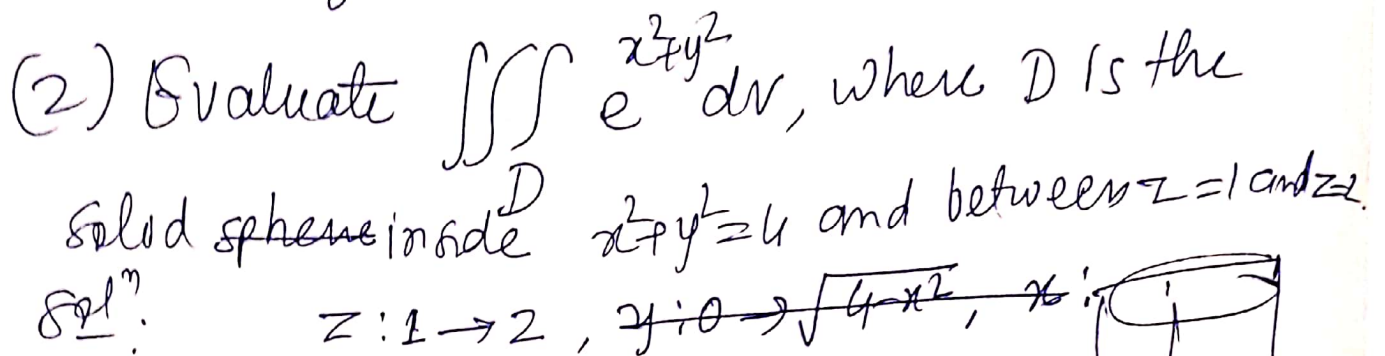 (2) Evaluate ∭_D e^{x²+y²} dv, where D is the
solid sphere inside x²+y²=4 and between z=1 and z=2.
Solⁿ. z:1→2, y:0→√(4-x²), x: